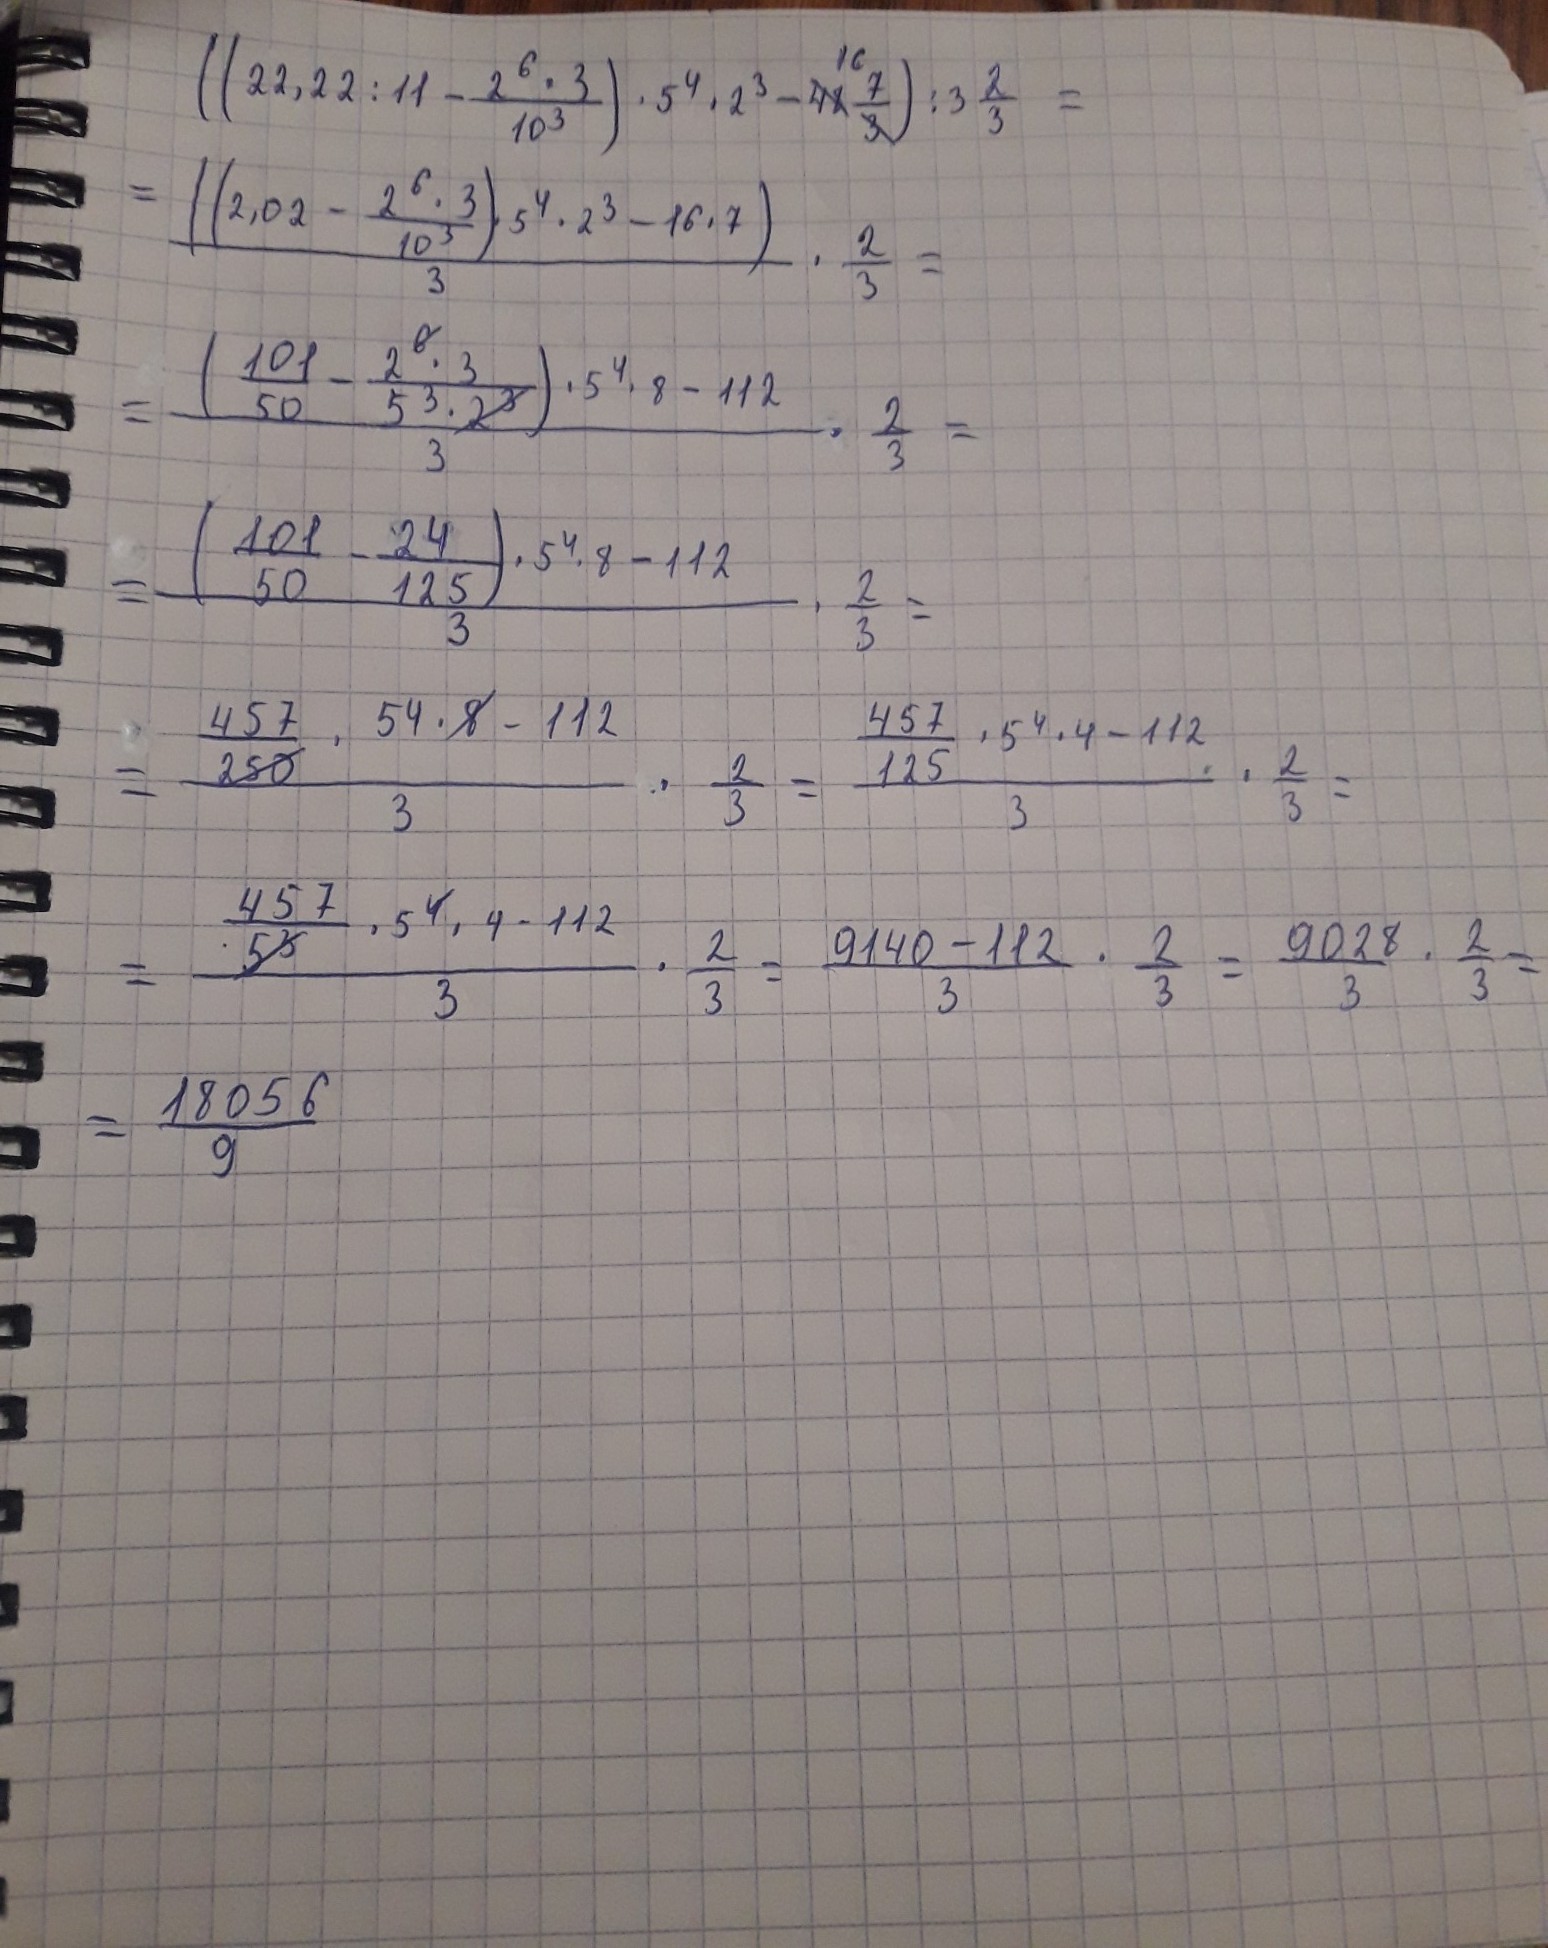 ((22,22 : 11 - 2⁶ · 3 / 10³) · 5⁴ · 2³ - 48 16 7/3) : 3 2/3 =
= ((2,02 - 2⁶ · 3 / 10³) · 5⁴ · 2³ - 16 · 7) / 3 · 2/3 =
= (101/50 - 2⁶ · 3 / 5³ · 2³) · 5⁴ · 8 - 112 / 3 · 2/3 =
= (101/50 - 24/125) · 5⁴ · 8 - 112 / 3 · 2/3 =
= 457/250 · 5⁴ · 8 - 112 / 3 · 2/3 = 457/125 · 5⁴ · 4 - 112 / 3 · 2/3 =
= 457/5³ · 5⁴ · 4 - 112 / 3 · 2/3 = 9140 - 112 / 3 · 2/3 = 9028/3 · 2/3 =
= 18056/9